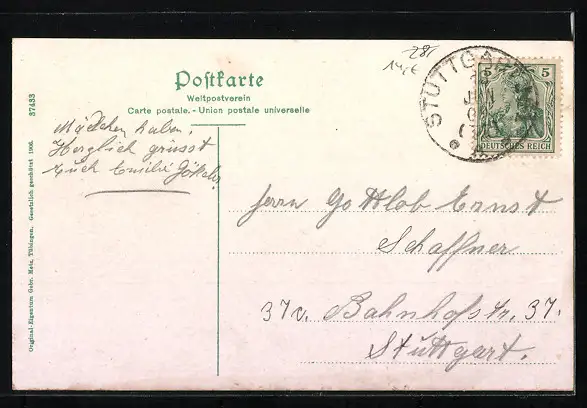 281
14,€
Postkarte
Weltpostverein
Carte postale. - Union postale universelle
STUTTGART
5 5
DEUTSCHES REICH
Mädchen haben.
Herzlich grüsst
Euch Emilie
Herrn Gottlob Ernst
Schaffner
37c. Bahnhofstr. 37.
Stuttgart.
37433
Original-Eigentum Gebr. Metz, Tübingen. Gesetzlich geschützt 1906.